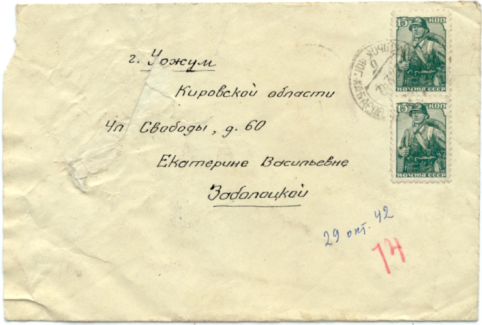 г. Уржум
Кировской области
Ул Свободы, д. 60
Екатерине Васильевне
Заболоцкой
29 окт. 42
14
15 КОП
ПОЧТА СССР
15 КОП
ПОЧТА СССР